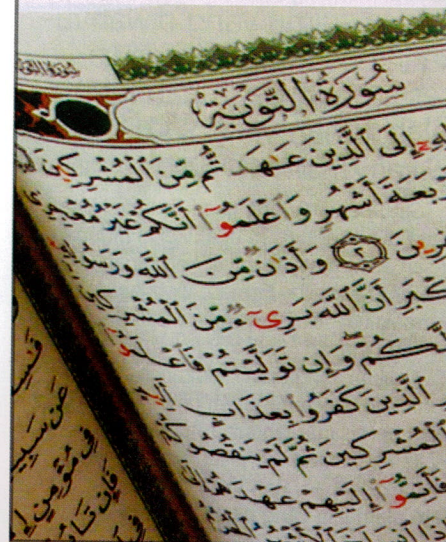 سُورَةُ التَّوْبَةِ
إِلَى الَّذِينَ عَاهَدتُّم مِّنَ الْمُشْرِكِينَ
بَعَةَ أَشْهُرٍ وَاعْلَمُوا أَنَّكُمْ غَيْرُ مُعْجِزِي
رِينَ ٢ وَأَذَانٌ مِّنَ اللَّهِ وَرَسُولِهِ
كْبَرِ أَنَّ اللَّهَ بَرِيءٌ مِّنَ الْمُشْرِكِينَ
لَّكُمْ وَإِن تَوَلَّيْتُمْ فَاعْلَمُوا
الَّذِينَ كَفَرُوا بِعَذَابٍ أَلِيمٍ
الْمُشْرِكِينَ ثُمَّ لَمْ يَنقُصُوكُمْ
فَأَتِمُّوا إِلَيْهِمْ عَهْدَهُمْ إِلَى